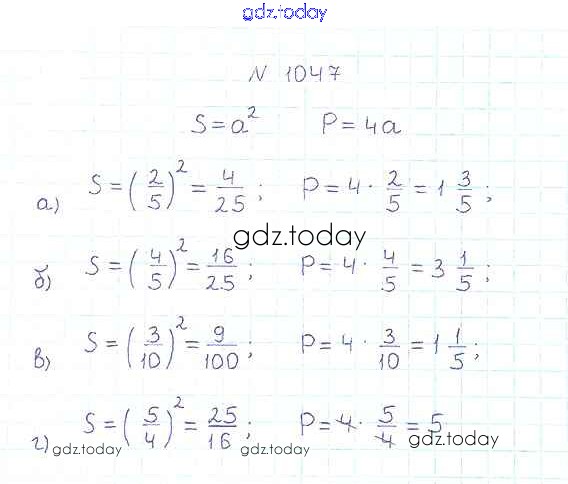 gdz.today
N 1047
S = a² P = 4a
а) S = (2/5)² = 4/25; P = 4 · 2/5 = 1 3/5;
gdz.today
б) S = (4/5)² = 16/25; P = 4 · 4/5 = 3 1/5;
в) S = (3/10)² = 9/100; P = 4 · 3/10 = 1 1/5;
г) S = (5/4)² = 25/16; P = 4 · 5/4 = 5
gdz.today gdz.today gdz.today